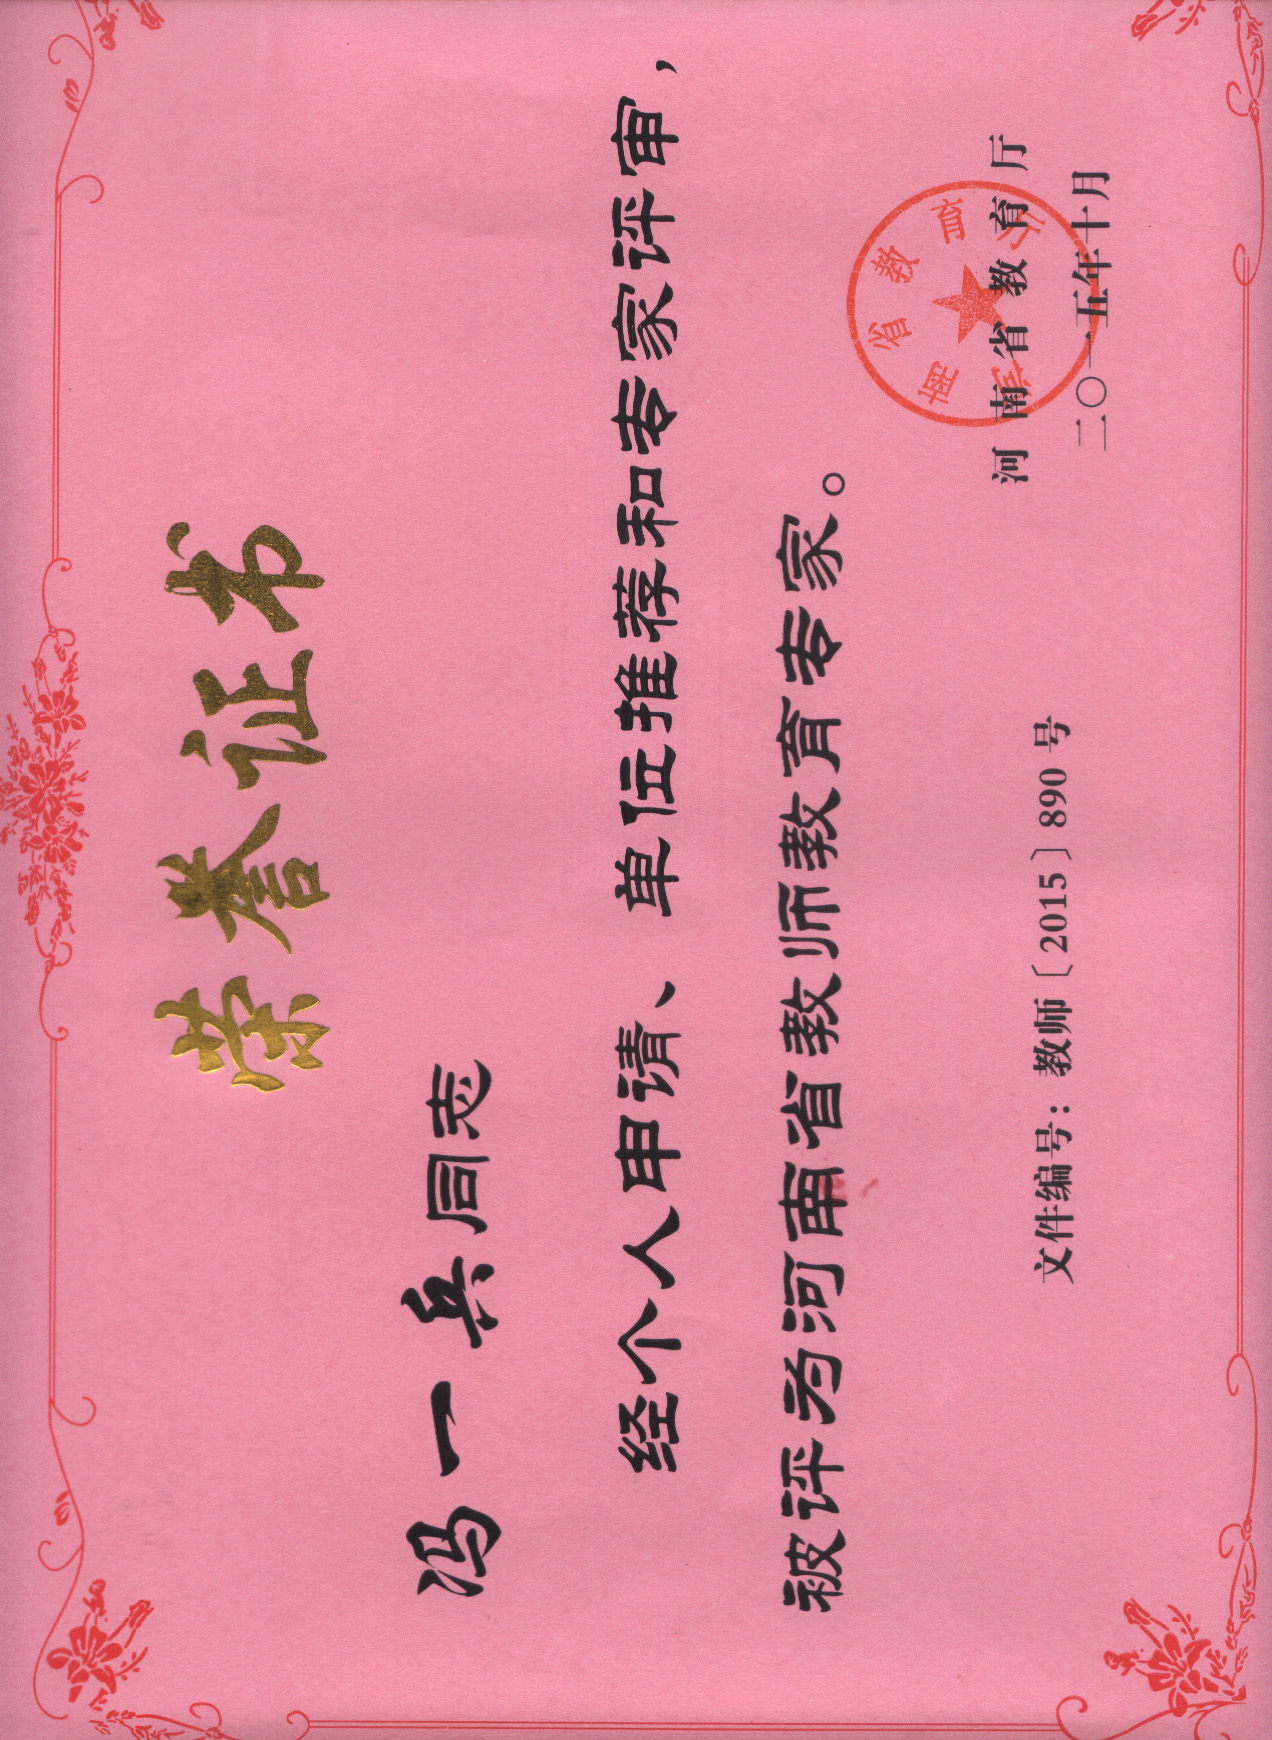 荣誉证书
冯一兵同志
经个人申请、单位推荐和专家评审，
被评为河南省教师教育专家。
河南省教育厅
河南省教育厅
二〇一五年十月
文件编号：教师〔2015〕890号